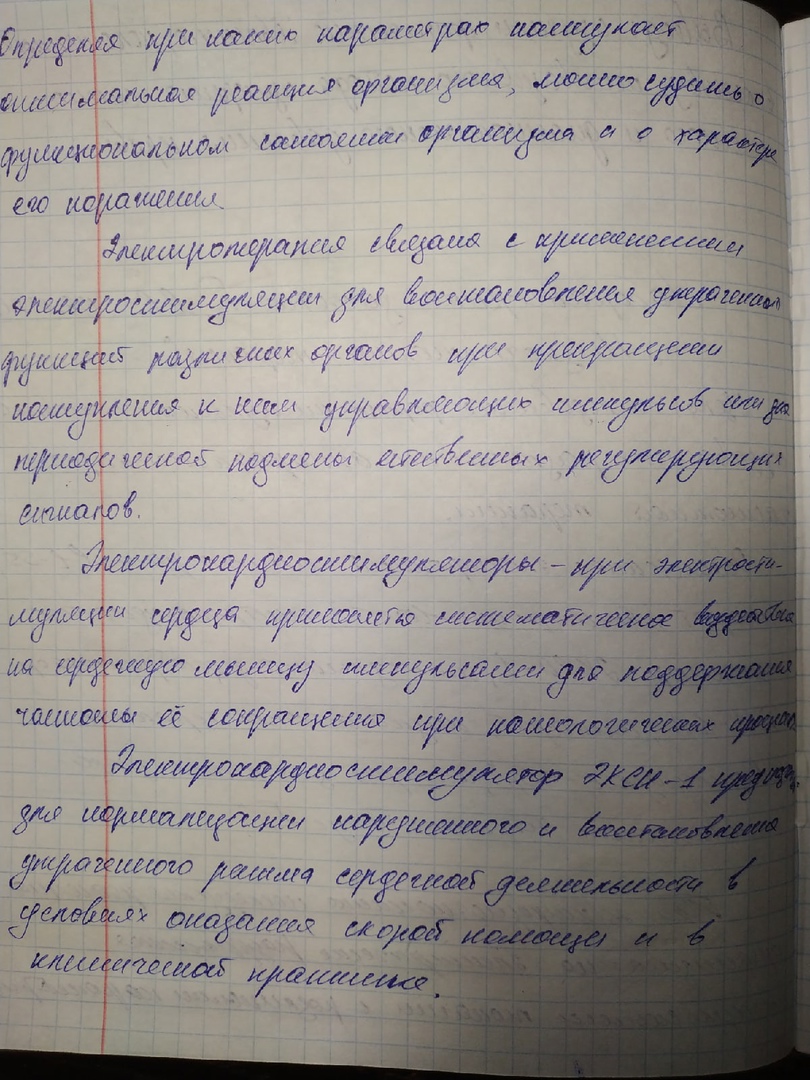 Определяя при каких параметрах наступает
оптимальная реакция организма, можно судить о
функциональном состоянии организма и о характере
его поражения
Электротерапия связана с применением
электростимуляции для восстановления утраченных
функций различных органов при прекращении
поступления к ним управляющих импульсов или для
периодической подмены естественных регулирующих
сигналов.
Электрокардиостимуляторы – при электрости-
муляции сердца применяется систематическое воздействие
на сердечную мышцу импульсами для поддержания
частоты её сокращения при патологических
Электрокардиостимулятор ЭКСН-1
для нормализации нарушенного и восстановления
утраченного ритма сердечной деятельности в
условиях оказания скорой помощи и в
клинической практике.